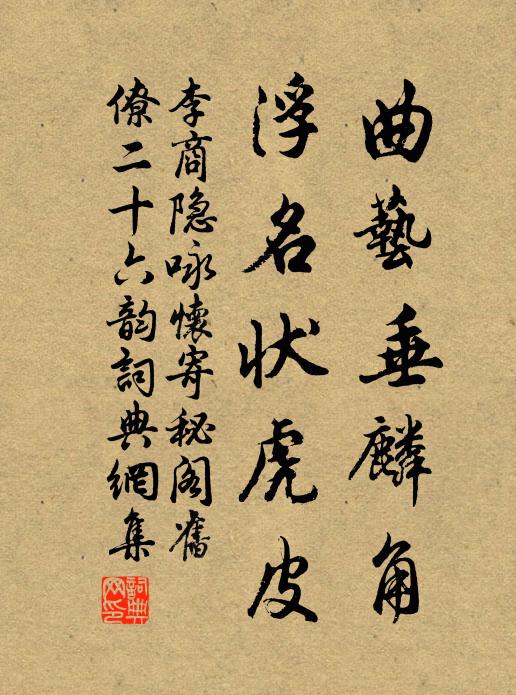 曲藝垂麟角
浮名状虎皮
李商隐咏懷寄秘阁舊
僚二十六韵詞典網集
詞典网印